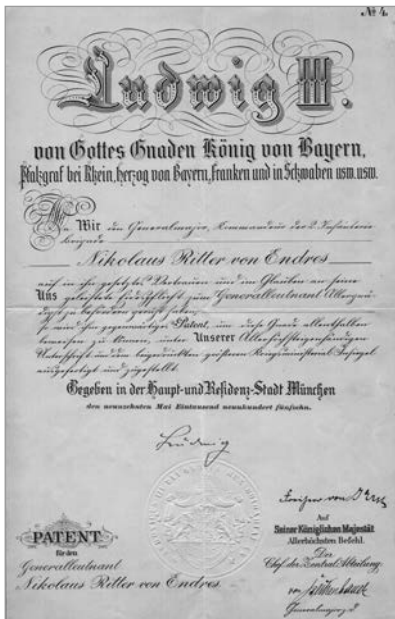 № 4.
Ludwig III.
von Gottes Gnaden König von Bayern,
Pfalzgraf bei Rhein, Herzog von Bayern, Franken und in Schwaben usw. usw.
Wir den Generalmajor, Kommandeur der 2. Infanterie
brigade
Nikolaus Ritter von Endres
auf in ihn gesetztes Vertrauen und im Glauben an seine
Uns geleistete Eidespflicht zum Generalleutnant Allergnä-
digst zu befördern geruht haben,
so wird ihm gegenwärtiges Patent, um diese Gnade allenthalben
beweisen zu können, unter Unserer Allerhöchsteigenhändigen
Unterschrift und dem beigedruckten größeren Kriegsministerial Insiegel
ausgefertigt und zugestellt.
Gegeben in der Haupt- und Residenz-Stadt München
den neunzehnten Mai Eintausend neunhundert fünfzehn.
Ludwig
PATENT
für den
Generalleutnant
Nikolaus Ritter von Endres.
Freiherr von
Auf
Seiner Königlichen Majestät
Allerhöchsten Befehl.
Der
Chef der Zentral Abteilung:
von
Generalmajor